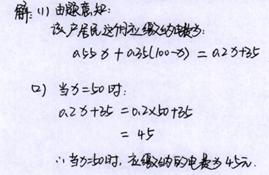 解: (1) 由题意知:
该户居民这个月应缴纳电费为:
0.55x + 0.35(100-x) = 0.2x+35
(2) 当x=50时:
0.2x+35 = 0.2x50+35
= 45
∴当x=50时, 应缴纳的电费为45元.